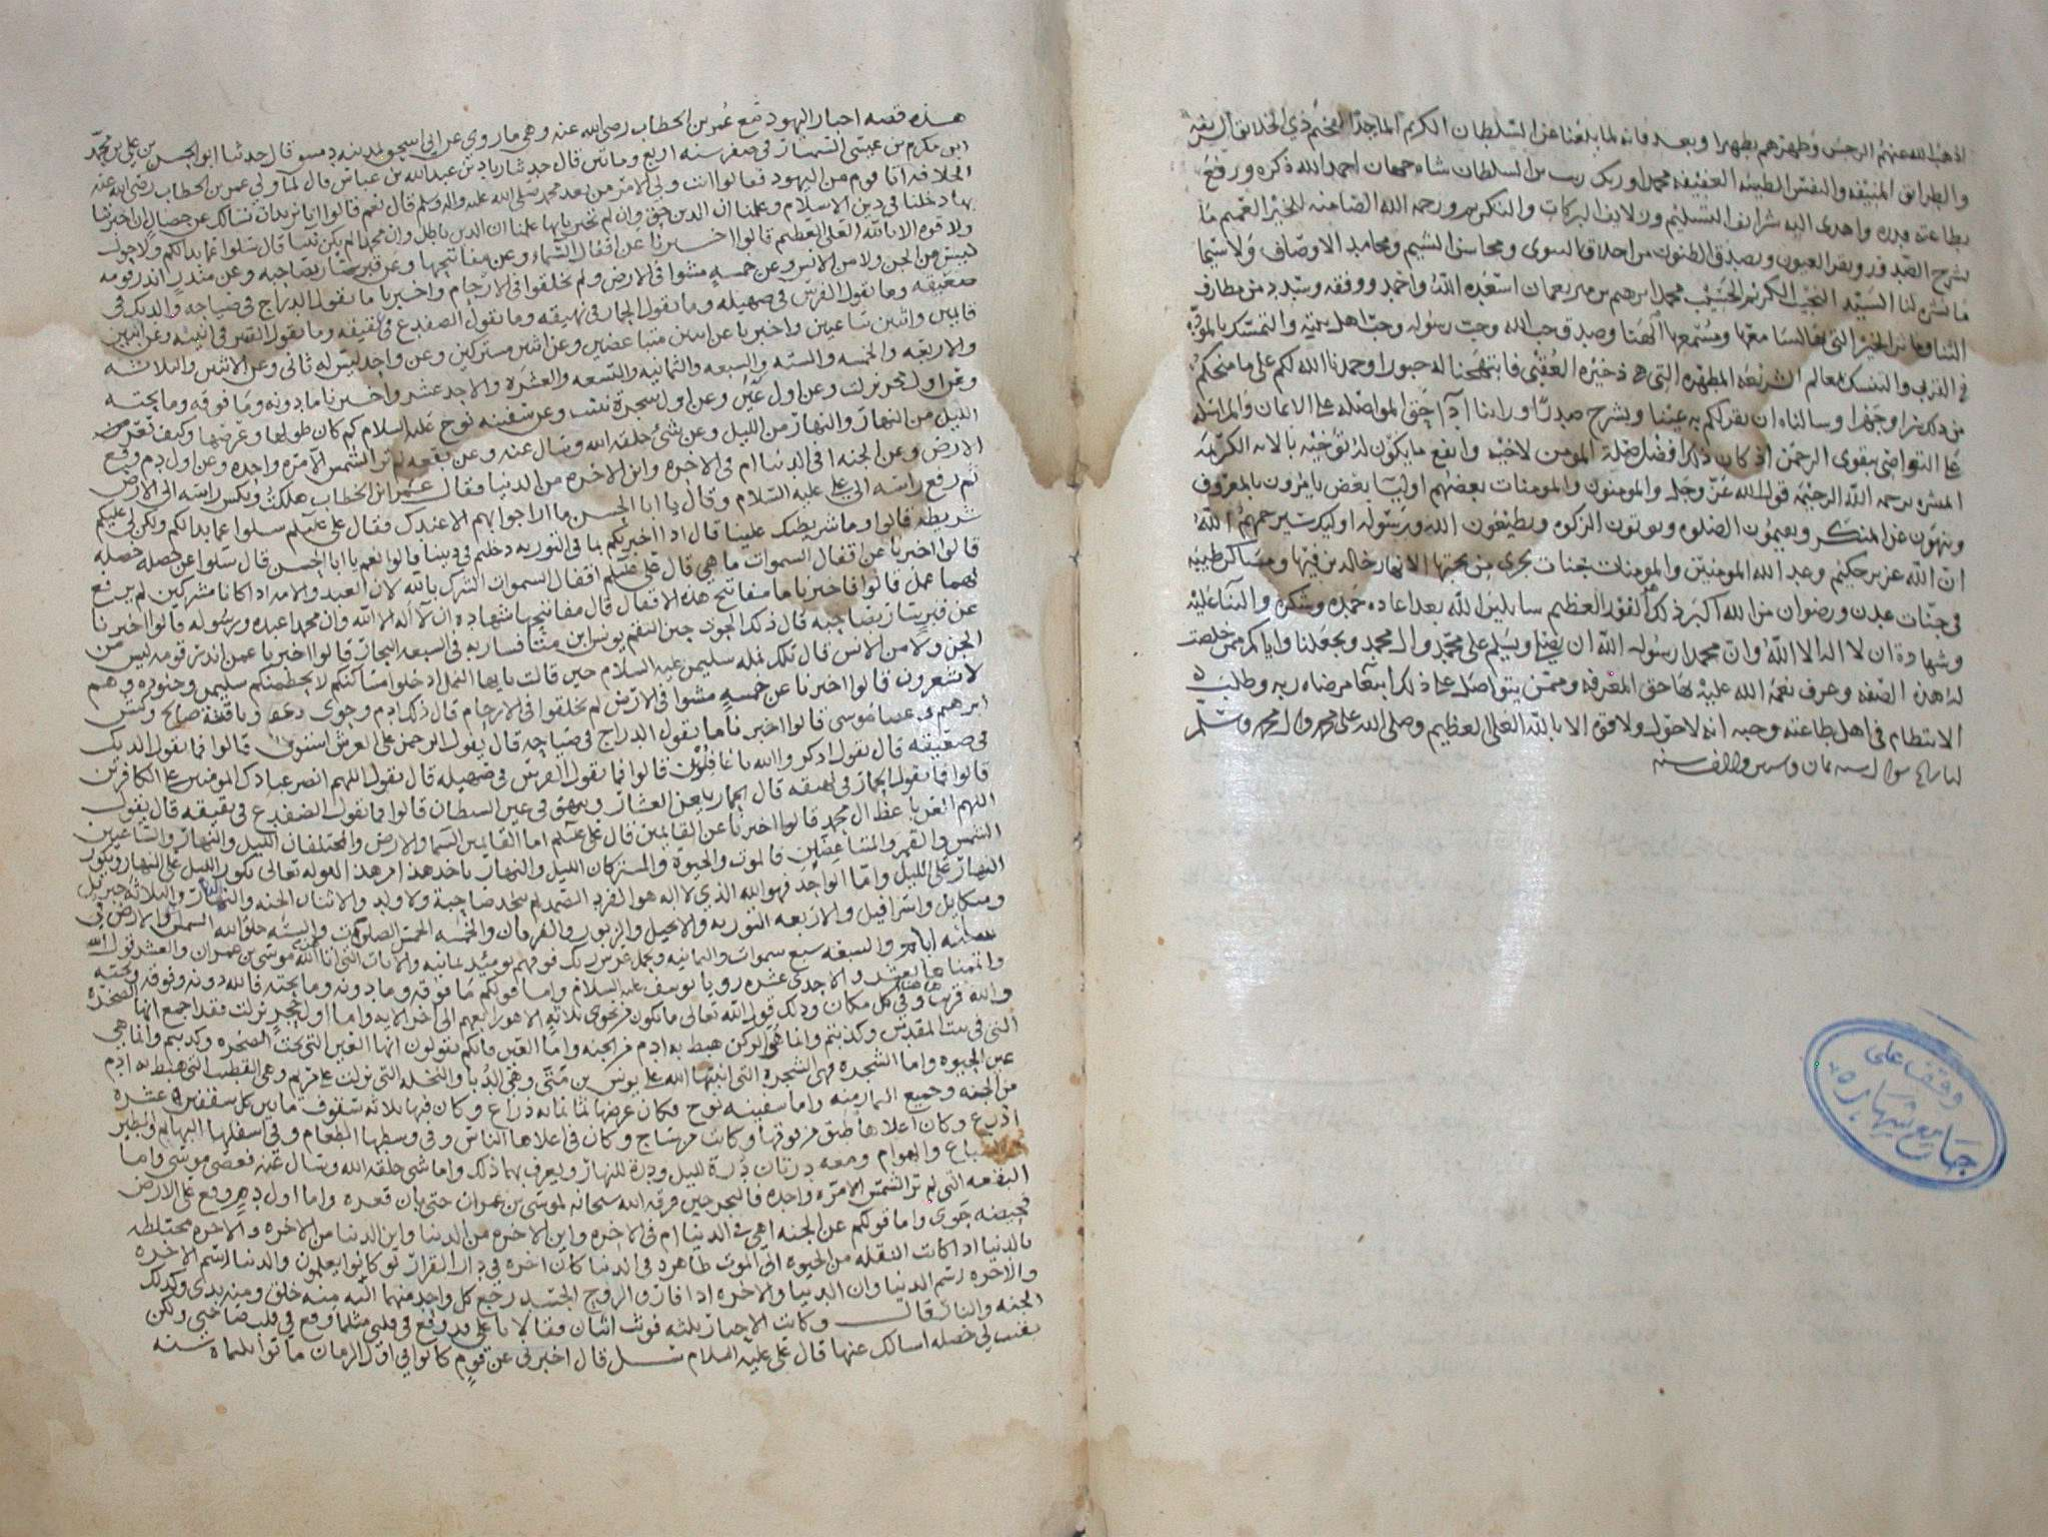 اذهب الله عنهم الرجس وطهرهم تطهيرا وبعد فانه لما بلغنا عن السلطان الكريم الماجد الفخم ذي الخلائق الشريفه
والطرائق المنيفه والنفس الطيبه العفيفه محمد اورنك زيب بن السلطان شاه جهان احمد الله ذكره ورفع
بطاعته قدره واهدى اليه شرائف التسليم وزلايف البركات والتكريم ورحمه الله الضامنه للخير العميم ما
يشرح الصدور ويقر العيون ويصدق الظنون من اخلاقه السوى ومحاسن الشيم ومحامد الاوصاف ولا سيما
ما نشره لنا السيد النجيب الكريم الحسيب محمد ابرهيم بن مير نعمان اسعده الله واحمده ووفقه وسدده من مطارف
الثنا وماثر الخير التي وصدق حب الله وحب رسوله وحب اهل بيته والتمسك بالموده
في القربى والتنسك بمعالم الشريعه المطهره التي هي ذخيره العقبى فابتهجنا له حبورا وحمدنا الله لكم على ما منحكم
من ذلك سرا وجهرا وسالناه ان يقر لكم به عينا ويشرح صدرا وراينا ادآ حق المواصله على الايمان والمراسله
على التواصي بتقوى الرحمن اذ كان ذلك افضل صلة المومن لاخيه وانفع ما يكون له توخيه بالايه الكريمه
المبشره برحمه الله الرحيمه قول الله عز وجل والمومنون والمومنات بعضهم اوليا بعض يامرون بالمعروف
وينهون عن المنكر ويقيمون الصلوه ويوتون الزكوه ويطيعون الله ورسوله اوليك سيرحمهم الله
ان الله عزيز حكيم وعد الله المومنين والمومنات جنات تجري من تحتها الانهار خالدين فيها ومساكن طيبه
في جنات عدن ورضوان من الله اكبر ذلك الفوز العظيم سايلين الله بعد اعاده حمده وشكره والثنا عليه
وشهادة ان لا اله الا الله وان محمدا رسول الله ان يصلي ويسلم على محمد وال محمد ويجعلنا واياكم ممن خلصت
له هذه الصفه وعرف نعمه الله عليه بها حق المعرفه وممن يتواصل على ذلك ابتغا مرضاه ربه وطلب
الانتظام في اهل طاعته وحبه انه لا حول ولا قوة الا بالله العلي العظيم وصلى الله على محمد وال محمد وسلم
شوال سنه ثمان وستين والف سنه
وقف على
جامع شهاره
هذه قصه احبار اليهود مع عمر بن الخطاب رضي الله عنه وهي ما روي عن ابي اسحق بمدينه دمشق قال حدثنا ابو الحسن بن علي بن محمد
ابن مكرم بن عيسى السمسار في صفر سنه اربع ومائتين قال حدثنا زياد بن عبدالله بن عباس قال لما ولي عمر بن الخطاب رضي الله عنه
الخلافه اتا قوم من اليهود فقالوا انت ولي الامر من بعد محمد صلى الله عليه واله وسلم قال نعم قالوا انا نريد ان نسالك عن خصال ان اخبرتنا
بها دخلنا في دين الاسلام وعلمنا ان الدين حق وان لم تخبرنا بها علمنا ان الدين باطل وان محمدا لم يكن نبيا قال سلوا عما بدا لكم ولا حول
ولا قوه الا بالله العلي العظيم قالوا اخبرنا عن اقفال السماء وعن مفاتيحها وعن قبر سار بصاحبه وعن منذر انذر قومه
ليس من الجن ولا من الانس وعن خمسه مشوا في الارض ولم يخلقوا في الارحام واخبرنا ما يقول الدراج في صياحه والديك في
صقيعه وما يقول الفرس في صهيله وما يقول الحمار في نهيقه وما يقول الضفدع في نقيقه وما يقول القنبر في انينه وعن اثنين
قايمين واثنين ساعيين واخبرنا عن اثنين متباغضين وعن اثنين مشتركين وعن واحد ليس له ثاني وعن الاثنين والثلاثه
والاربعه والخمسه والسته والسبعه والثمانيه والتسعه والعشره والاحد عشر واخبرنا ما دونه وما فوقه وما تحته
وعن اول حجر نزلت وعن اول عين وعن اول شجرة نبتت وعن سفينه نوح عليه السلام كم كان طولها وعرضها وكيف تعرف
الليل من النهار والنهار من الليل وعن شي خلقه الله وسال عنه وعن بقعه لم تر الشمس الا مره واحده وعن اول دم وقع
الارض وعن الجنه افي الدنيا ام في الاخره واين الاخره من الدنيا فقال عمر ابن الخطاب هلكت ونكس راسه الى الارض
ثم رفع راسه الى علي عليه السلام وقال يا ابا الحسن ما ارا جوابهم الا عندك فقال علي عليلم سلوا عما بدا لكم ولكن لي عليكم
شريطه قالوا وما شريطتك علينا قال اذا اخبرتكم بما في التوريه دخلتم في ديننا قالوا نعم يا ابا الحسن قال سلوا عن خصله خصله
قالوا اخبرنا عن اقفال السموات ما هي قال علي عليلم اقفال السموات الشرك بالله لان العبد والامه اذا كانا مشركين لم يرفع
لهما عمل قالوا فاخبرنا ما مفاتيح هذه الاقفال قال مفاتيحها شهاده ان لا اله الا الله وان محمدا عبده ورسوله قالوا اخبرنا
عن قبر سار بصاحبه قال ذلك الحوت حين التقم يونس ابن متا فسار به في السبعه البحار قالوا اخبرنا عمن انذر قومه ليس من
الجن ولا من الانس قال تلك نمله سليمن عليه السلام حين قالت يايها النمل ادخلوا مساكنكم لا يحطمنكم سليمن وجنوده وهم
لا يشعرون قالوا اخبرنا عن خمسه مشوا في الارض لم يخلقوا في الارحام قال ذلك ادم وحوى وناقة صالح وكبش
ابرهيم وعصا موسى قالوا اخبرنا ما يقول الدراج في صياحه قال يقول الرحمن على العرش استوى قالوا فما يقول الديك
في صقيعه قال يقول اذكروا الله يا غافلون قالوا فما يقول الفرس في صهيله قال يقول اللهم انصر عبادك المومنين على الكافرين
قالوا فما يقول الحمار في نهيقه قال الحمار يلعن العشار وينهق في عين الشيطان قالوا فما يقول الضفدع في نقيقه قال يقول
اللهم العن ال محمد قالوا اخبرنا عن القايمين قال علي عليلم اما القايمين السما والارض والمختلفان الليل والنهار والساعيين
الشمس والقمر والمتباغضين فالموت والحيوة والمشتركان الليل والنهار ياخذ هذا من هذا لقوله تعالى يكور الليل على النهار ويكور
النهار على الليل واما الواحد فهو الله الذي لا اله هو الفرد الصمد لم يتخذ صاحبة ولا ولد والاثنان الجنه والنار والثلاثه جبريل
وميكايل واسرافيل والاربعه التوريه والانجيل والزبور والفرقان والخمسه الخمس الصلوات والسته خلق الله السموات والارض في
سته ايام والسبعه سبع سموات والثمانيه ويحمل عرش ربك فوقهم يوميذ ثمانيه والايات التي اتا الله موسى بن عمران والعشر قول الله
واتممناها بعشر والاحدى عشره رويا يوسف عليه السلام واما قولكم ما فوقه وما دونه وما تحته فالله دونه وفوقه وتحته
والله قريب وفي كل مكان وذلك قول الله تعالى ما يكون من نجوى ثلاثه الا هو رابعهم الى اخر الايه واما اول حجر نزلت فقد اجمع انها الصخره
التي في بيت المقدس وكذبتم وانما هي الركن هبط به ادم من الجنه واما العين فانكم تقولون انها العين التي تحت الصخره وكذبتم وانما هي
عين الحيوه واما الشجره فهي الشجره التي انبتها الله على يونس بن متى وهي الدبا والنخله التي نزلت على مريم وهي القضب التي هبط به ادم
من الجنه وجميع الثمار منه واما سفينه نوح فكان عرضها ثمانمايه ذراع وكان فيها ثلاثه سقوف ما بين كل سقفين عشره
اذرع وكان اعلاها طبق من فوقها وكانت من ساج وكان في اعلاها الناس وفي وسطها الطعام وفي اسفلها البهايم والطير
والسباع والهوام ومعه درتان درة لليل ودرة للنهار ويعرف بهما ذلك واما شي خلقه الله وسال عنه فعصى موسى واما
البقعه التي لم تر الشمس الا مره واحده فالبحر حين فرقه الله سبحانه لموسى بن عمران حتى بان قعره واما اول دم وقع على الارض
فحيضه حوى واما قولكم عن الجنه اهي في الدنيا ام في الاخره واين الاخره من الدنيا واين الدنيا من الاخره والاخره مختلطه
بالدنيا اذا كانت النقله من الحيوه الى الموت ظاهره في الدنيا كان اخره في دار القرار لو كانوا يعلمون والدنيا رسم الاخره
والاخره رسم الدنيا وان الدنيا والاخره اذا فارق الروح الجسد رجع كل واحد منهما اليه منه خلق ومنه بدى وكذلك
الجنه والنار قال وكانت الاحبار ثلثه فوثب اثنان فقالا يا علي قد وقع في قلبي مثلما وقع في قلب صاحبي ولكن
بقيت لي خصله اسالك عنها قال علي عليه السلام سل قال اخبرني عن قوم كانوا في اول الزمان ماتوا ثلثمايه سنه